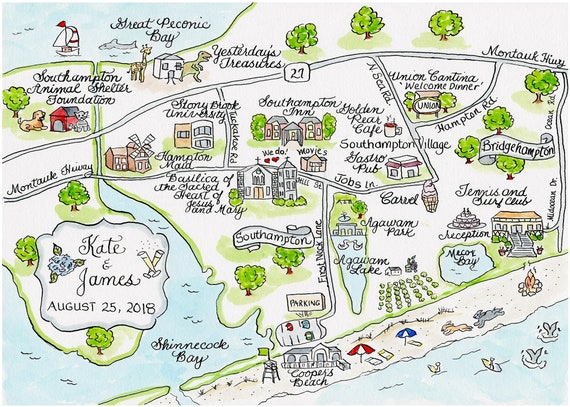 Great Peconic
Bay
Yesterday's
Treasures
27
Montauk Hwy
Southampton
Animal Shelter
Foundation
Stony Brook
University
Tuckahoe Rd
Southampton
Inn
N Sea Rd
Golden
Pear
Cafe
Union Cantina
"Welcome Dinner"
UNION
Hampton Rd
Ocean Rd
Bridgehampton
Southampton Village
Gastro
Pub
We do!
Movies
Hampton
Maid
Montauk Hwy
Basilica of
the Sacred
Heart of
Jesus
and Mary
Hill St
Jobs Ln
Carvel
Tennis and
Surf Club
Midocean Dr
Reception
Mecox
Bay
Agawam
Park
Agawam
Lake
Southampton
First Neck Lane
PARKING
Kate
&
James
AUGUST 25, 2018
Shinnecock
Bay
Cooper's
Beach